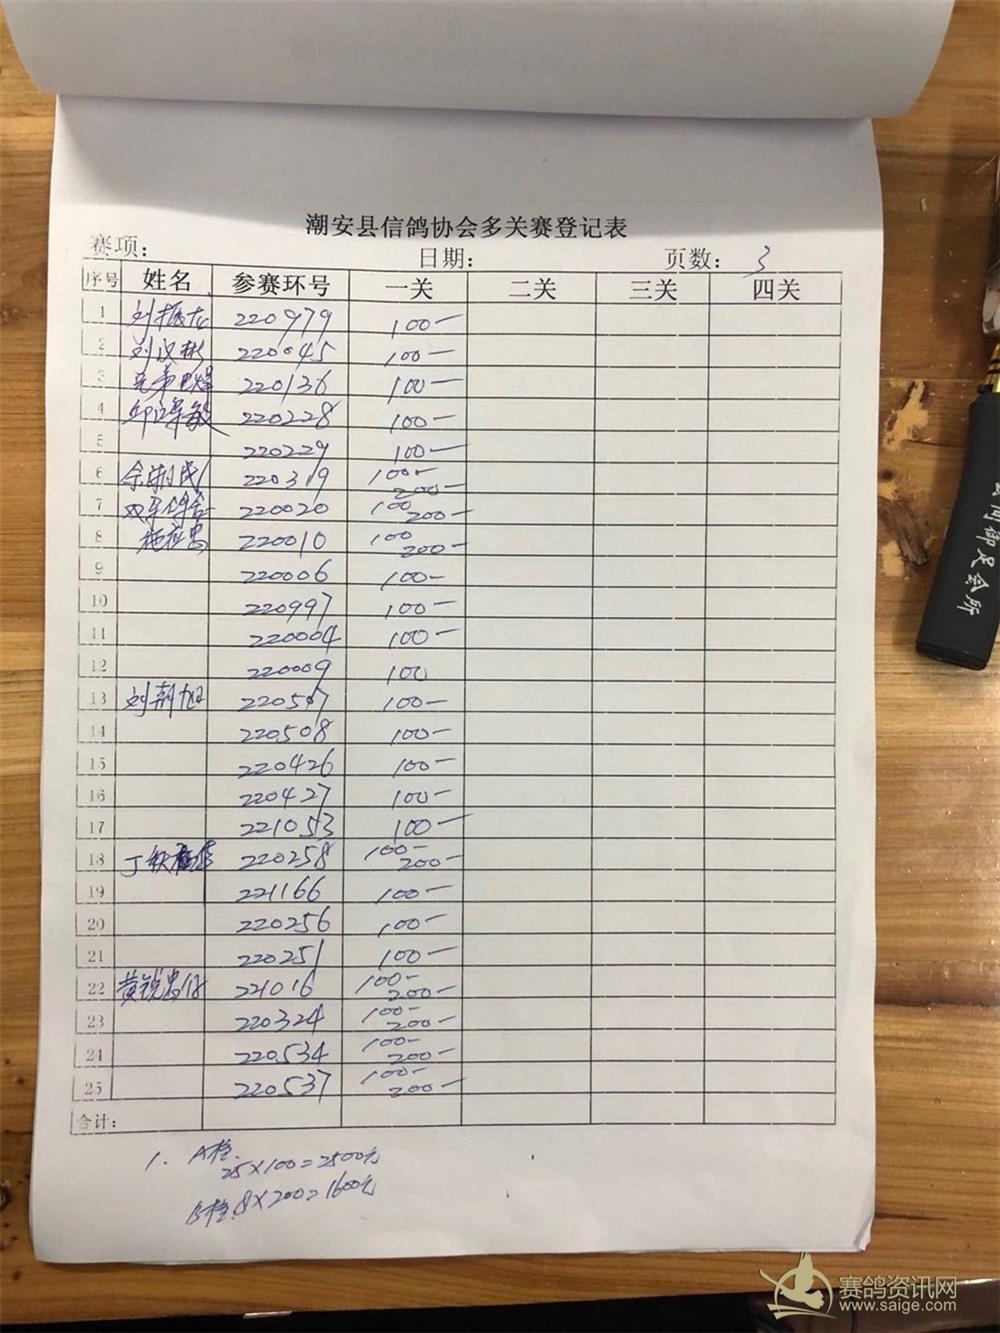 潮安县信鸽协会多关赛登记表
赛项: 日期: 页数: 3
序号 姓名 参赛环号 一关 二关 三关 四关
1 刘振龙 220979 100-
2 刘汉彬 220045 100-
3 兄弟 220136 100-
4 220228 100-
5 220229 100-
6 余潮民 220319 100- 200-
7 双军鸽舍 220020 100 200-
8 施茂忠 220010 100 200-
9 220006 100-
10 220997 100-
11 220004 100-
12 220009 100
13 刘朝旭 220507 100-
14 220508 100-
15 220426 100-
16 220427 100-
17 221053 100-
18 丁 220258 100- 200-
19 221166 100-
20 220256 100-
21 220251 100-
22 黄锐 221016 100- 200-
23 220324 100- 200-
24 220534 100- 200-
25 220537 100- 200-
合计:
1. A档.
25×100=2500元
B档.8×200=1600元
云河御足会所
赛鸽资讯网
www.saige.com